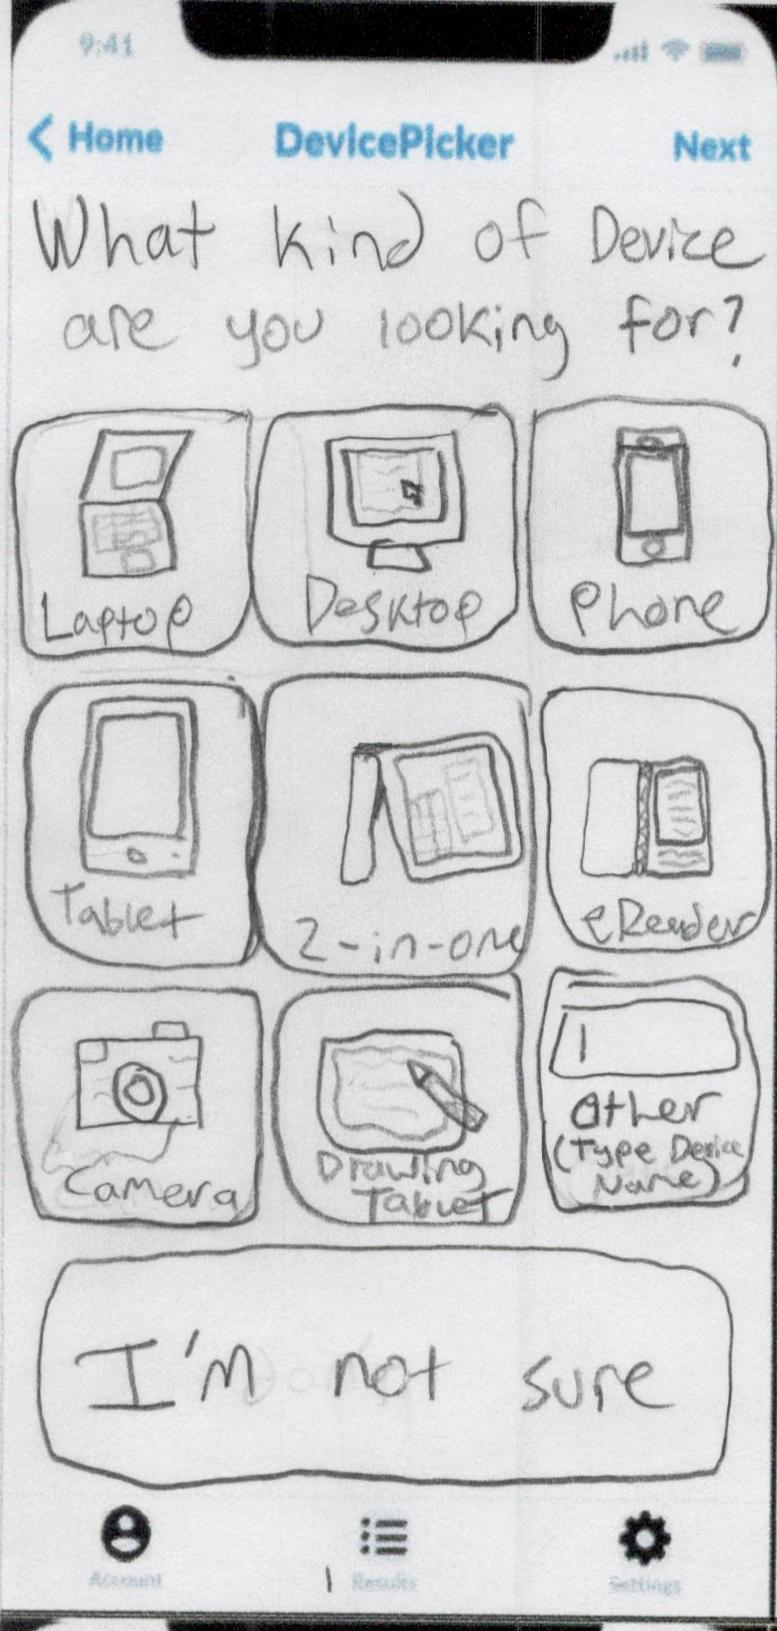 9:41
Home DevicePicker Next
What kind of Device
are you looking for?
Laptop Desktop Phone
Tablet 2-in-one eReader
Camera Drawing
Tablet
Other
(Type Device
Name)
I'm not sure
Account Results Settings